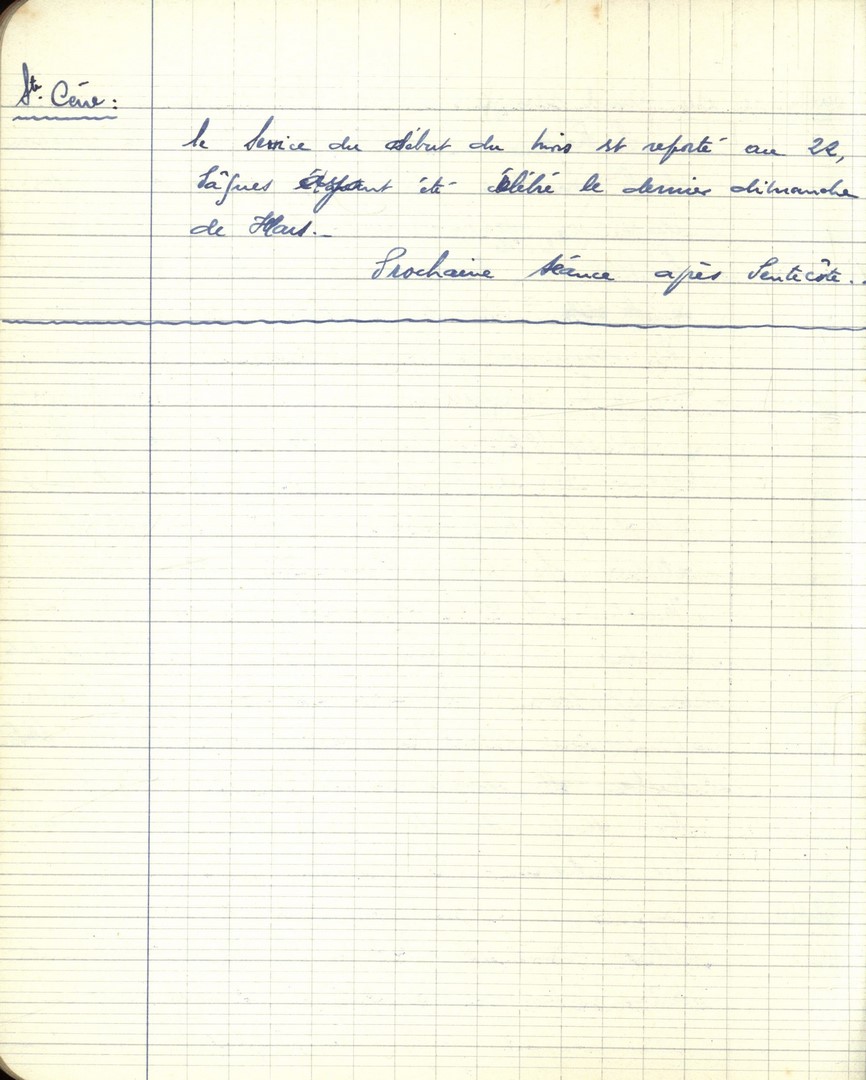 Ste. Cène :
Le Service du début du mois est reporté au 22,
Pâques ayant été célébré le dernier dimanche
de Mars._
Prochaine séance après Pentecôte..